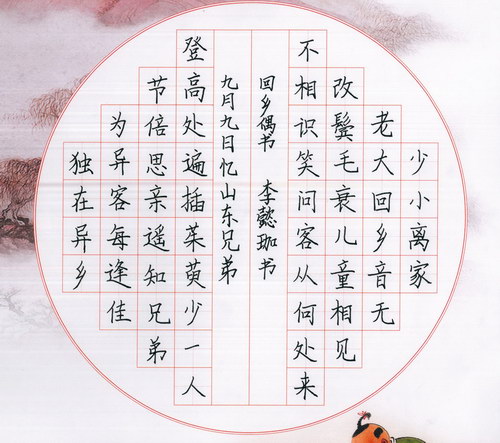 少小离家
老大回乡音无
改鬓毛衰儿童相见
不相识笑问客从何处来
回乡偶书 李懿珈书
九月九日忆山东兄弟
独在异乡
为异客每逢佳
节倍思亲遥知兄弟
登高处遍插茱萸少一人